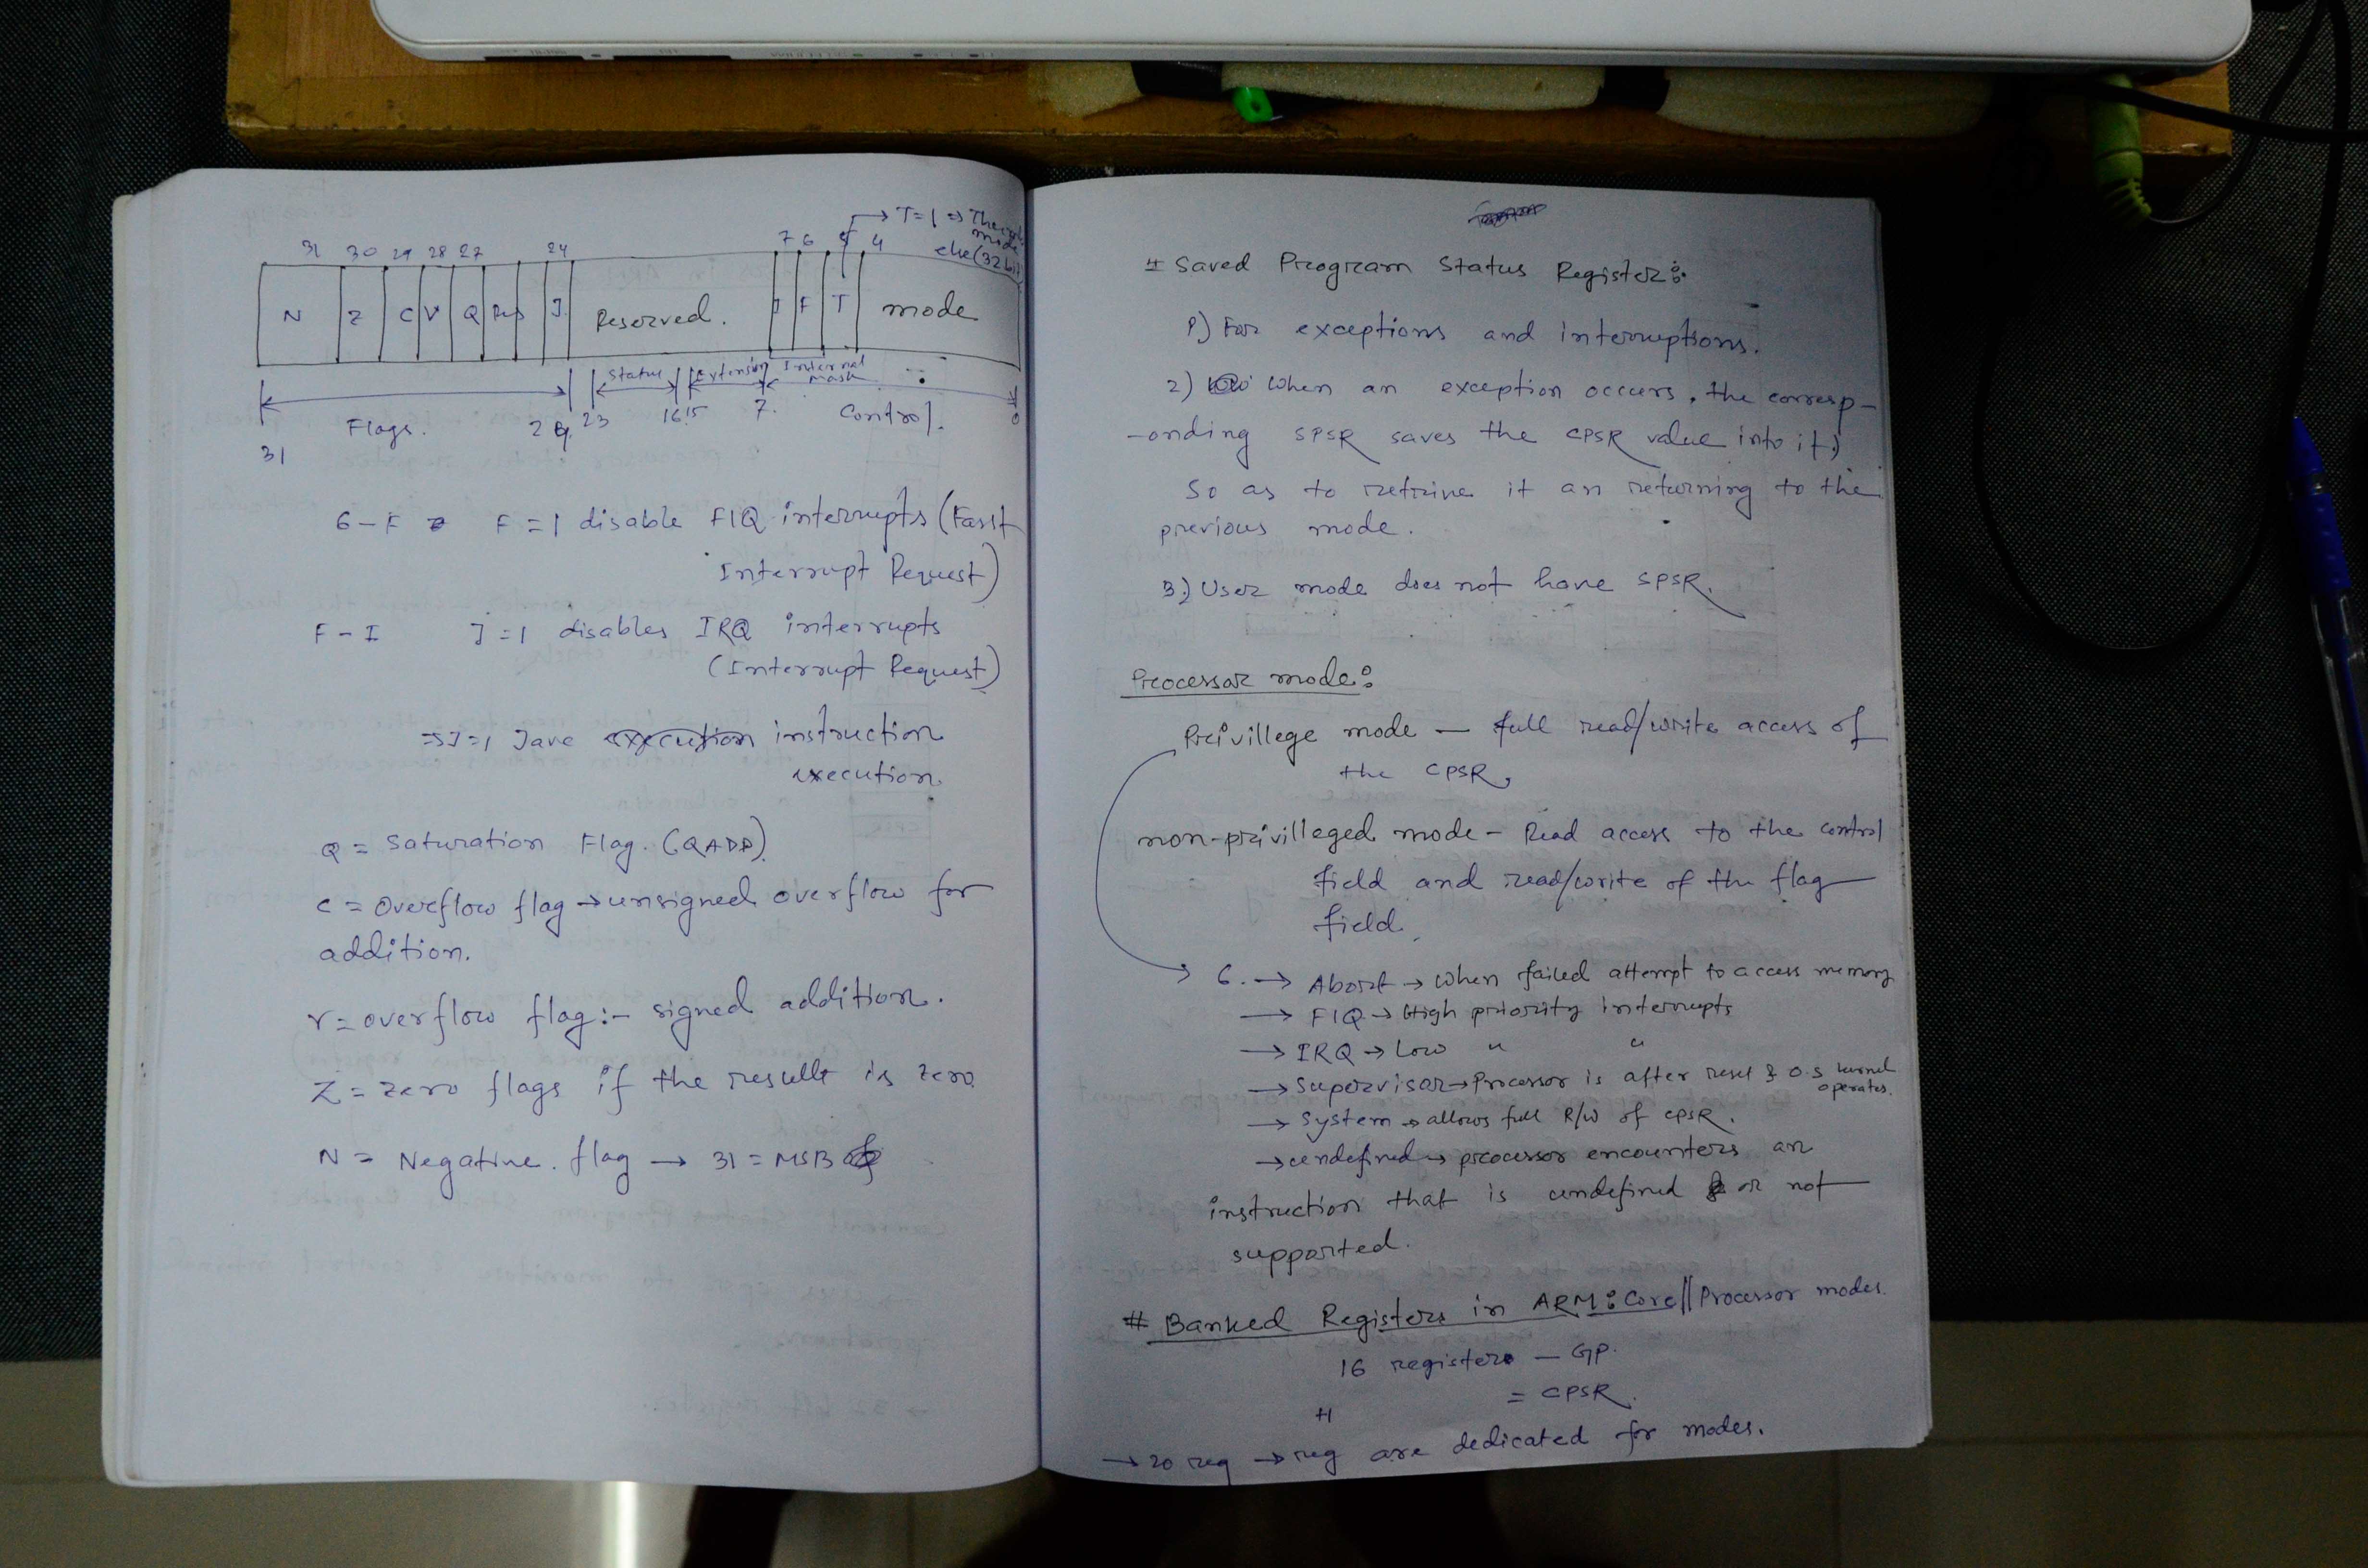 T=1 => Thumb
mode
else (32 bit)
31 30 29 28 27 24 7 6 5 4
N Z C V Q Res J Reserved. I F T mode
Status Extension Internal mask
31 Flags. 24. 23 16 15 7. Control. 0
6 - F F = 1 disable FIQ interrupts (Fast
Interrupt Request)
F - I I = 1 disables IRQ interrupts
(Interrupt Request)
=> J=1 Jave execution instruction
execution.
Q = Saturation Flag. (QADD).
C = Overflow flag → unsigned overflow for
addition.
V = overflow flag:- signed addition.
Z = zero flags if the result is zero.
N = Negative. flag → 31 = MSB
# Saved Program Status Register:
1) For exceptions and interruptions.
2) When an exception occurs, the corresp-
-onding SPSR saves the CPSR value into it)
So as to retrive it an returning to the
previous mode.
3.) User mode does not have SPSR.
Processor mode:
Privillege mode — full read/write access of
the CPSR,
non-privilleged mode - Read access to the control
field and read/write of the flag
field.
6. → Abort → When failed attempt to access memory
→ FIQ → High priority interrupts
→ IRQ → Low " "
→ Supervisor → Processor is after reset & O.S kernel
operates.
→ System → allows full R/W of CPSR.
→ undefined → processor encounters an
instruction that is undefined or not
supported.
# Banked Registers in ARM: Core || Processor modes.
16 registers — GP.
= CPSR.
+1
→ 20 reg → reg are dedicated for modes.